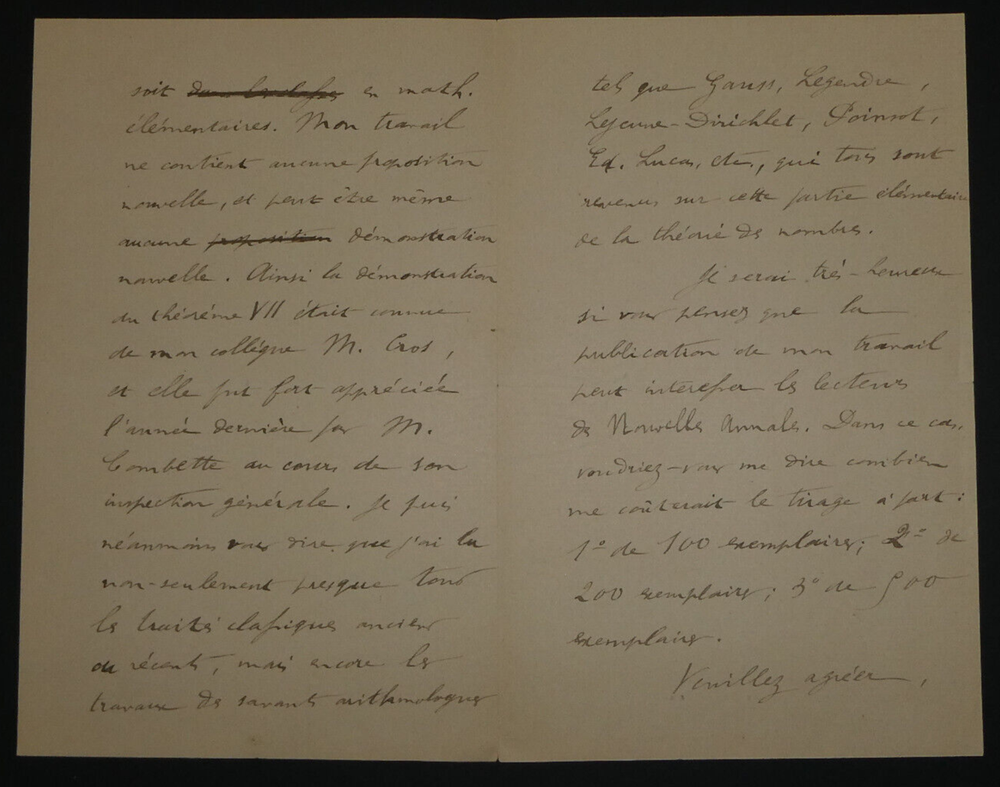 soit dans les classes en math.
élémentaires. Mon travail
ne contient aucune proposition
nouvelle, et peut être même
aucune proposition démonstration
nouvelle. Ainsi la démonstration
du théorème VII était connue
de mon collègue M. Cros,
et elle fut fort appréciée
l'année dernière par M.
Combette au cours de son
inspection générale. Je puis
néanmoins vous dire que j'ai lu
non-seulement presque tous
les traités classiques anciens
ou récents, mais encore les
travaux des savants arithmologues
tels que Gauss, Legendre,
Lejeune-Dirichlet, Poinsot,
Ed. Lucas, etc., qui tous sont
revenus sur cette partie élémentaire
de la théorie des nombres.
Je serai très-heureux
si vous pensez que la
publication de mon travail
peut intéresser les lecteurs
des Nouvelles Annales. Dans ce cas,
voudriez-vous me dire combien
me coûterait le tirage à part :
1° de 100 exemplaires; 2° de
200 exemplaires; 3° de 500
exemplaires.
Veuillez agréer,